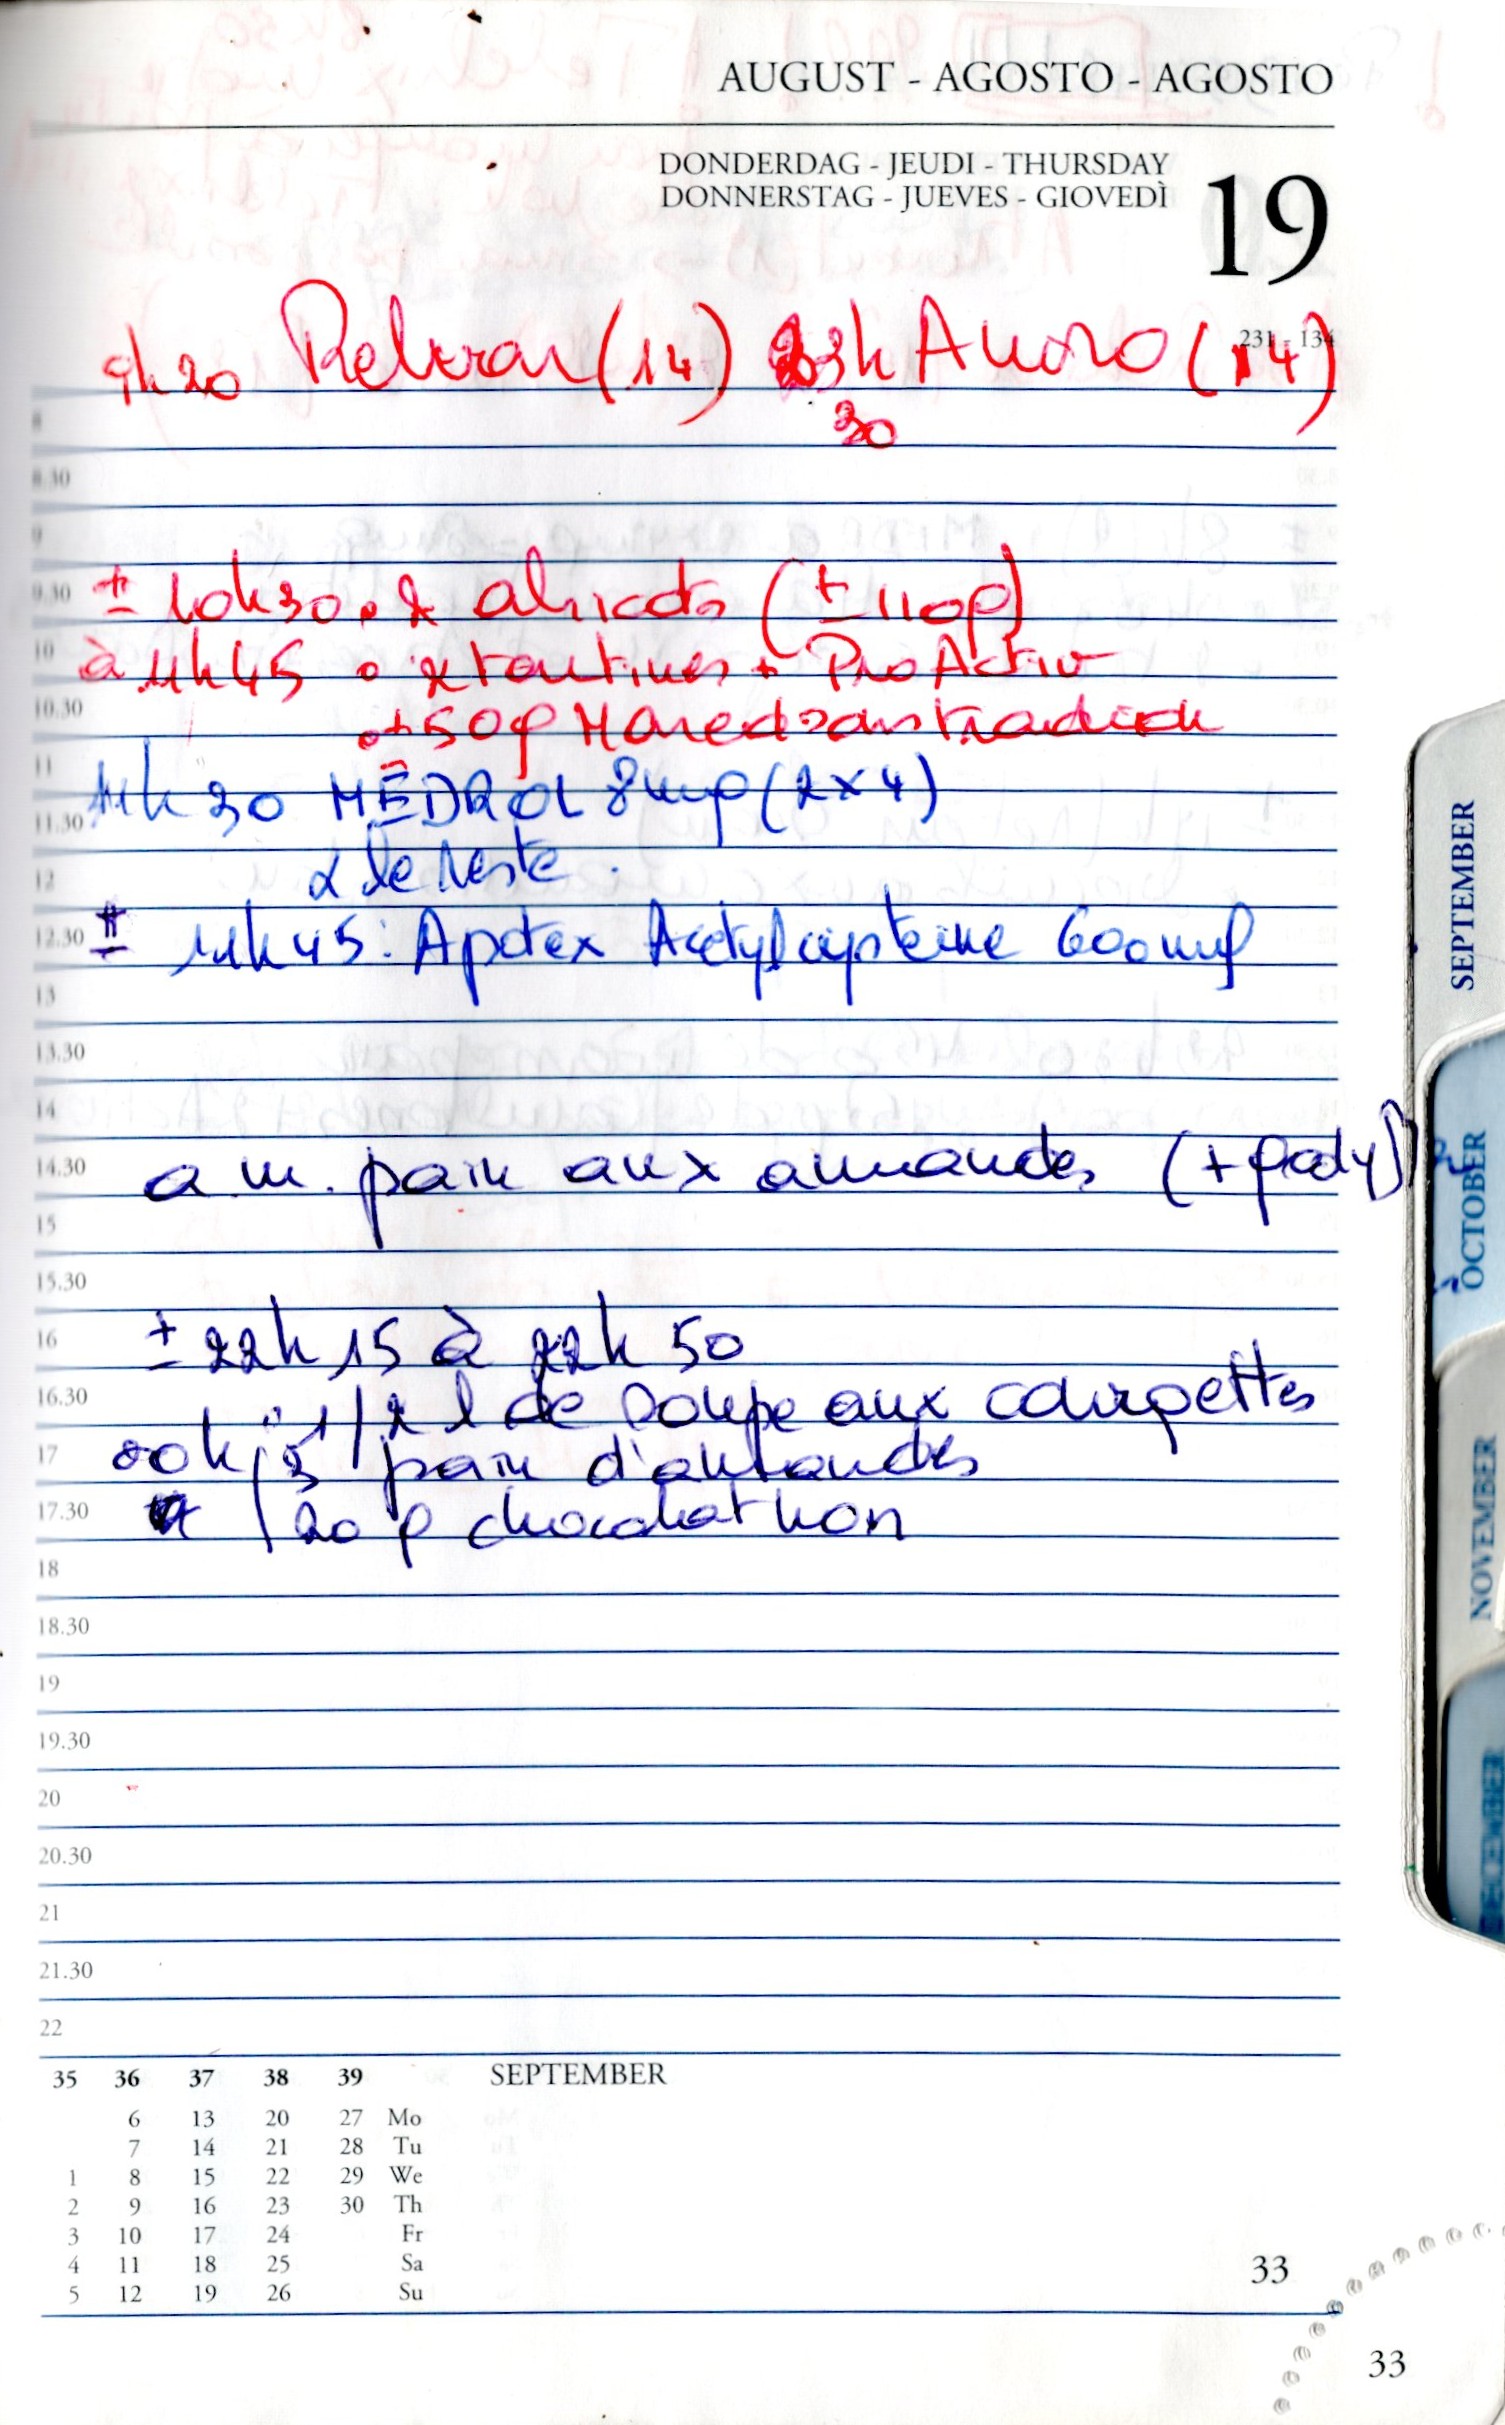 AUGUST - AGOSTO - AGOSTO
DONDERDAG - JEUDI - THURSDAY
DONNERSTAG - JUEVES - GIOVEDÌ
19
231 - 134
9h20 Relvar (14) 23h Auoro (14)
30
8
8.30
9
9.30 ± 10h30 • 2 abricots (± 110g)
10 à 11h45 • 2 tartines + ProActiv
10.30 • ± 50g Maredsous tradition
11 11h30 MÉDROL 8mg (2x4)
11.30
12 & le reste.
12.30 ± 11h45: Apotex Acétylcystéine 600mg
13
13.30
14
14.30 a.m. pain aux amandes (+ gady)
15
15.30
16 ± 22h15 à 22h50
16.30 1/2 l de soupe aux courgettes
17 00h15 pain d'amandes
17.30 20 g chocolat
18
18.30
19
19.30
20
20.30
21
21.30
22
35 36 37 38 39 SEPTEMBER
6 13 20 27 Mo
7 14 21 28 Tu
1 8 15 22 29 We
2 9 16 23 30 Th
3 10 17 24 Fr
4 11 18 25 Sa
5 12 19 26 Su
33
33
SEPTEMBER
OCTOBER
NOVEMBER
DECEMBER